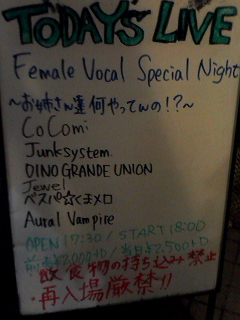 TODAY'S LIVE
Female Vocal Special Night
～お姉さん達何やってんの!?～
CoComi
Junksystem.
DINO GRANDE UNION
Jewel
ベスパ☆くまメロ
Aural Vampire
OPEN 17:30 / START 18:00
前売¥2,000+D / 当日¥2,500+D
・飲食物の持ち込み禁止
・再入場厳禁!!